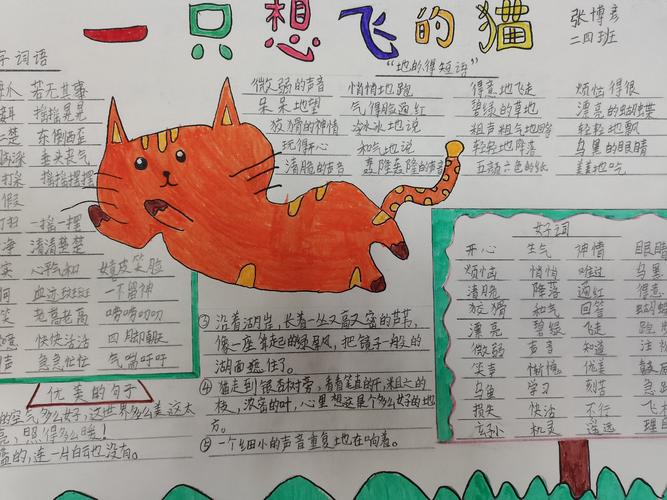 一只想飞的猫
张博彦
二四班
字词语
若无其事
摇摇晃晃
东倒西歪
垂头丧气
摇摇摆摆
一摇一摆
清清楚楚
心平气和 嬉皮笑脸
血迹斑斑 一不留神
老高老高 唠唠叨叨
快快活活 四脚朝天
急急忙忙 气喘吁吁
"地的得短语"
微弱的声音 悄悄地跑 得意地飞走 烦恼得很
呆呆地望 气得脸通红 碧绿的草地 漂亮的蝴蝶
狡猾的神情 冷冰冰地说 粗声粗气地回答 轻轻地飘
玩得开心 和气地说 轻轻地降落 乌黑的眼睛
清脆的声音 轰隆轰隆的声音 五颜六色的纸 美美地吃
好词
开心 生气 神情 眼睛
烦恼 悄悄 难过 乌黑
清脆 降落 通红 得意
狡猾 和气 回答 蝴蝶
漂亮 碧绿 飞走
微弱 声音 知道
笑声 惭愧 优美
乌龟 学习 刻苦
损失 快活 不行
机灵 遥远
优美的句子
的空气多么好,这世界多么美这太
亮,照得多么暖!
蓝的,连一片白云也没有。
③沿着湖岸,长着一丛又高又密的芦苇,
像一座算起的绿屏风,把镜子一般的
湖面遮住了。
④猫走到银杏树旁,看看笔直的干,粗大的
枝,浓密的叶,心里想这是个多么好的地
方。
⑤一个细小的声音重复地在响着。